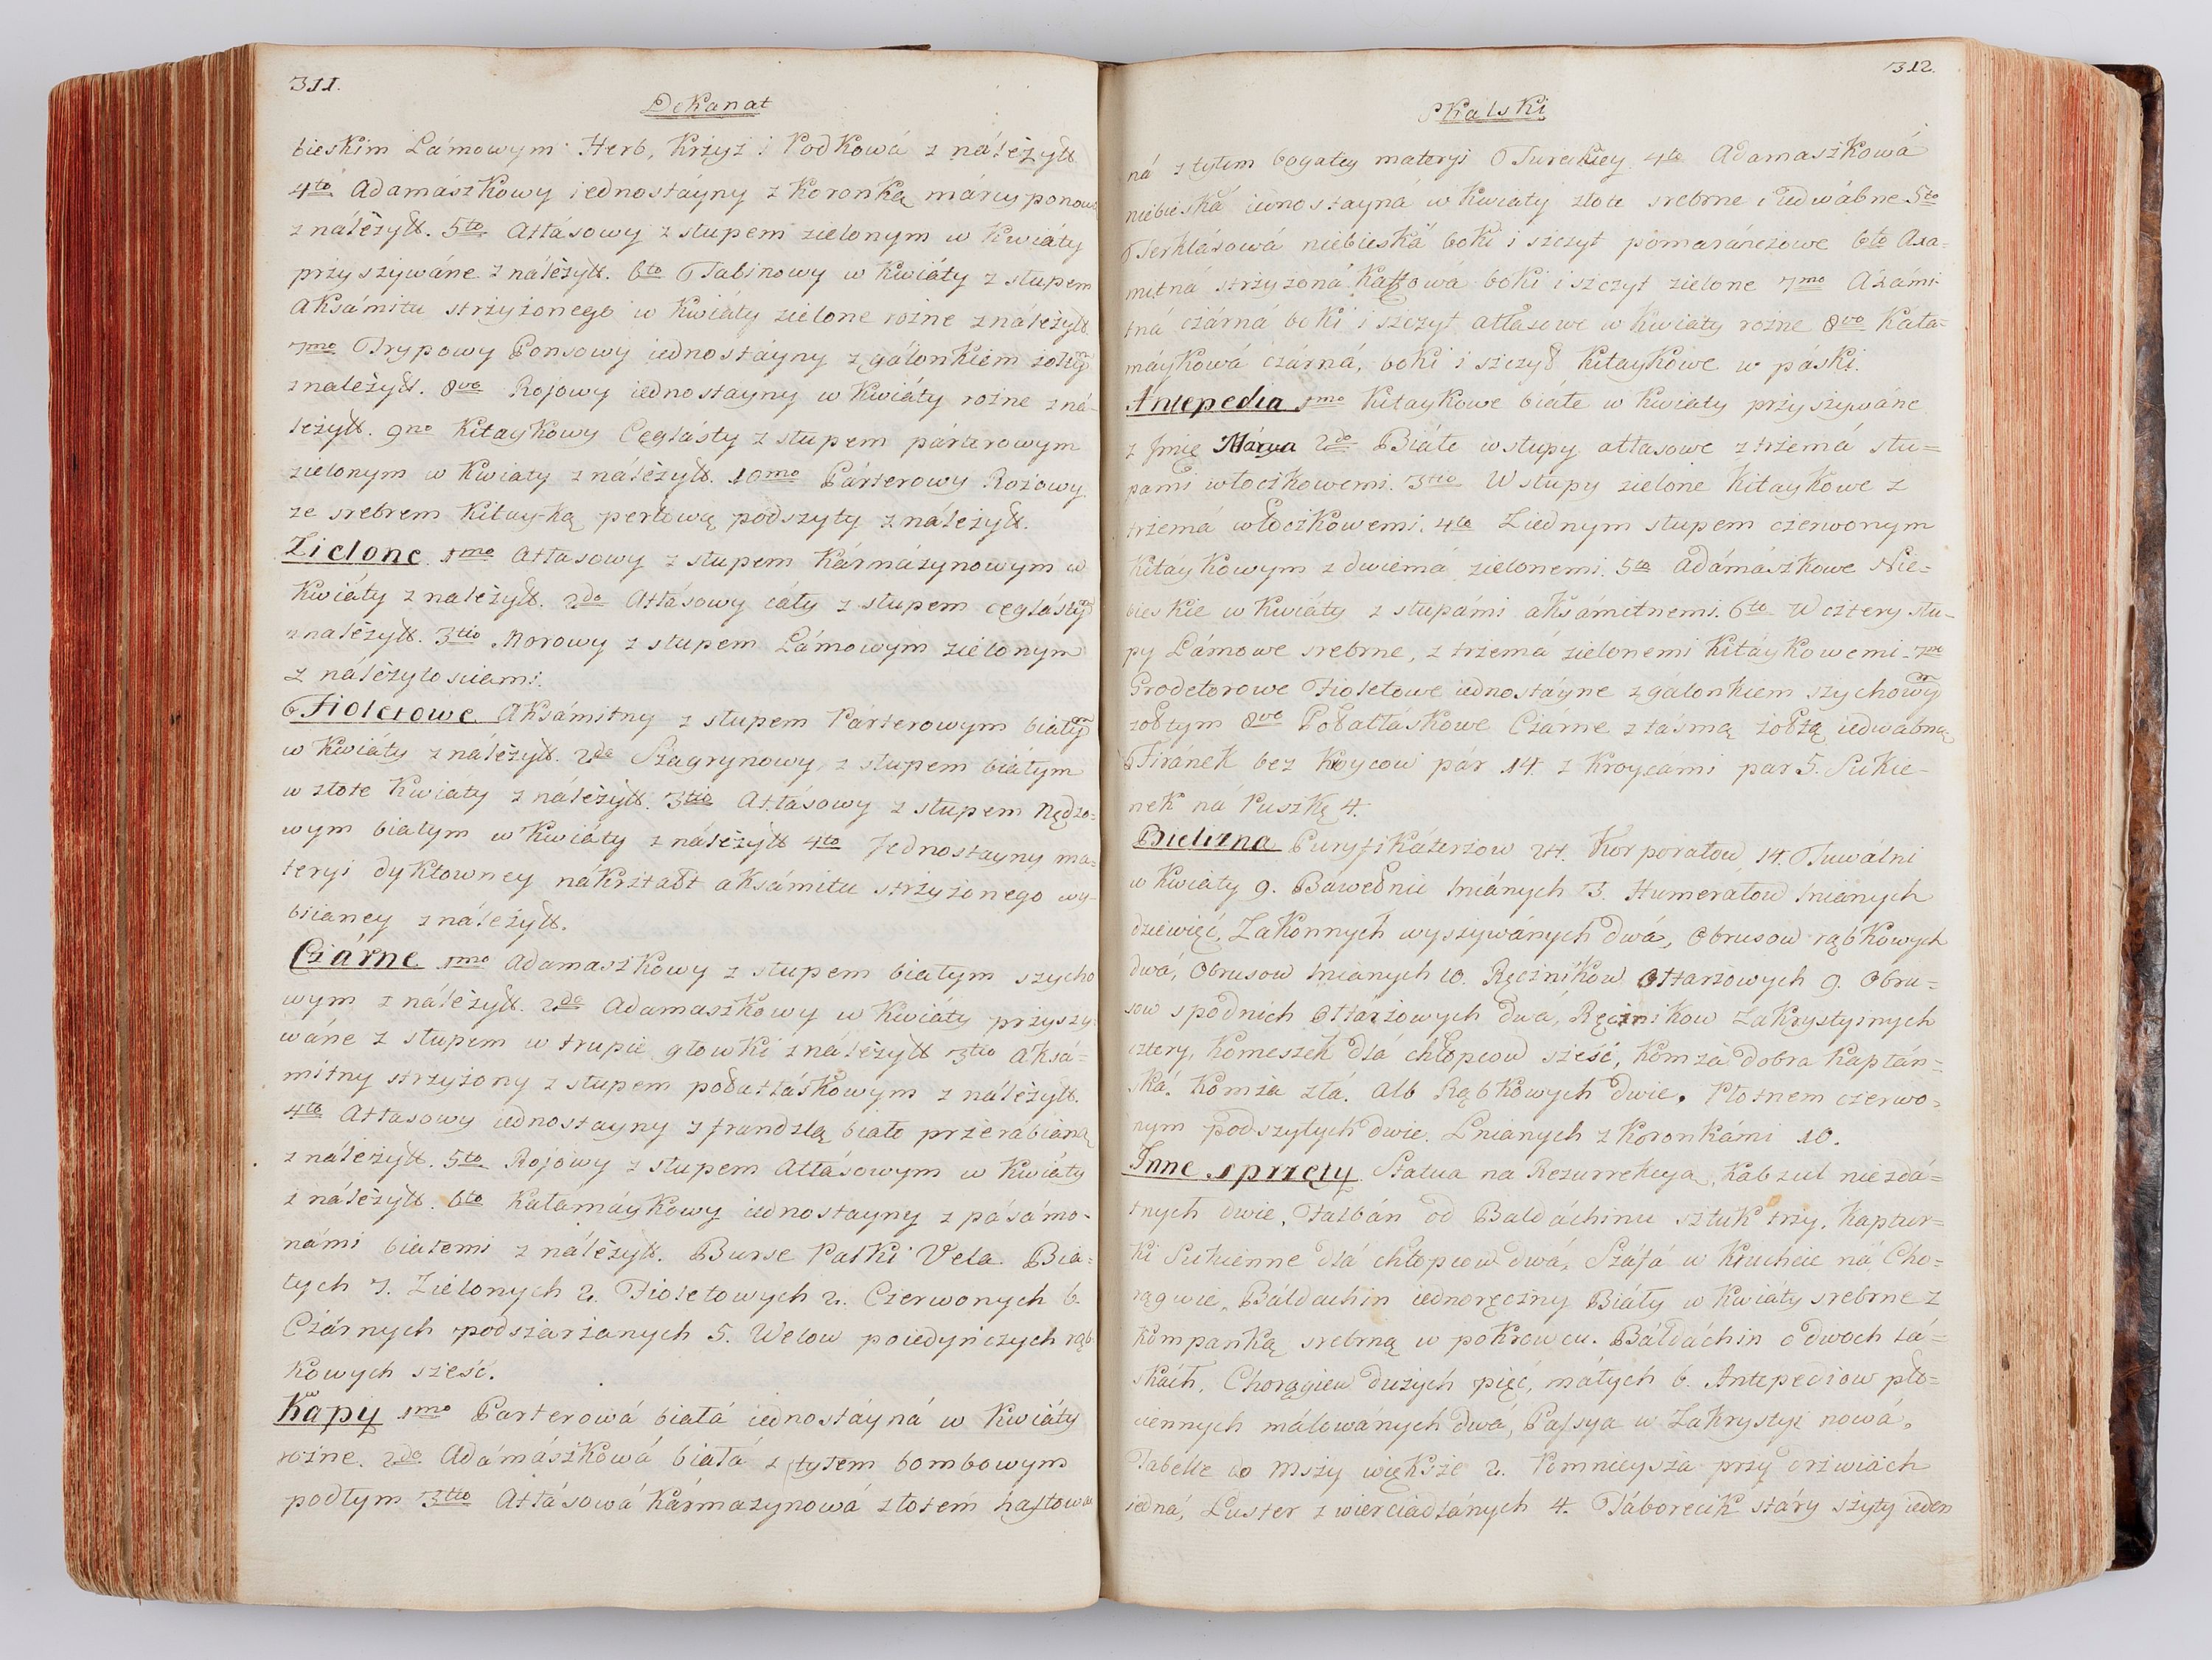 311.
Dekanat
bieskim Lámowym Herb, Krzyż i Podkowá z náleżyt
4to Adamászkowy iednostáyny z Koronką márcyponową
z náleżyt. 5to Atłásowy z słupem zielonym w Kwiáty
przyszywáne z náleżyt. 6to Tabinowy w Kwiáty z słupem
Aksámitu strzyżonego w Kwiáty zielone rożne z należyt
7mo Trypowy Ponsowy iednostáyny z gálonkiem żołtym
z należyt. 8vo Rojowy iednostayny w Kwiáty rożne z ná-
leżyt. 9no Kitaykowy Cęglásty z słupem párterowym
zielonym w Kwiaty z náleżyt. 10mo Párterowy Rożowy
ze srebrem Kitayką perłową podszyty z náleżyt.
Zielone 1mo Atłasowy z słupem Kármázynowym w
Kwiáty z należyt. 2do Atłásowy cáły z słupem cęglástym
z należyt. 3tio Morowy z słupem Lámowym zielonym
z náleżytosciami.
Fioletowe Aksámitny z słupem Párterowym białym
w Kwiáty z náleżyt. 2do Szagrynowy z słupem białym
w złote Kwiaty z náleżyt. 3tio Atłásowy z słupem
wym białym w Kwiáty z náleżyt 4to Jednostayny ma=
teryi dyktowney nákształt aksámitu strzyżonego wy-
bijaney z náleżyt.
Czárne 1mo Adamaszkowy z słupem białym szycho
wym z náleżyt. 2do Adamaszkowy w Kwiáty przyszy
wáne z słupem w trupie głowki z náleżyt 3tio Aksá=
mitny strzyżony z słupem połatłáskowym z náleżyt.
4to Atłasowy iednostayny z frandzlą biało przerábianą
z náleżyt. 5to Rojowy z słupem Atłásowym w Kwiáty
z náleżyt. 6to Kałamáykowy iednostayny z pásámo-
námi białemi z náleżyt. Burse Palki Vela Bia=
łych 7. Zielonych 2. Fioletowych 2. Czerwonych 6.
Czárnych podszarzanych 5. Welow poiedyńczych rąb
kowych sześć.
Kapy 1mo Parterowá białá iednostáyná w Kwiáty
rożne. 2do Adámászkowá białá z tyłem bombowym
podłym 3tio Atłásowá Kármazynowá złotem háftowa
312.
Skalski
ná z tyłem bogatey materyi Tureckiey 4to Adamaszkowá
niebieská iednostayná w Kwiaty złote srebrne i Jedwábne 5to
Terklásowá niebieská boki i szczyt pomaránczowe 6to Axa=
mitná strzyżoná Kaffowá boki i szczyt zielone 7mo Axámi-
tná czárná boki i szczyt atłasowe w Kwiaty rożne 8vo Kała=
máykowá czárná, boki i szczyt Kitaykowe w páski.
Antepedia 1mo Kitaykowe białe w Kwiaty przyszywáne
z Jmię Márya 2do Białe w słupy atłasowe z trzemá słu=
pami włoczkowemi. 3tio W słupy zielone Kitaykowe z
trzemá włoczkowemi. 4to Z iednym słupem czerwonym
Kitaykowym z dwiemá zielonemi. 5to Adámászkowe Nie=
bieskie w Kwiáty z słupámi aksámitnemi. 6to W cztery słu-
py Lámowe srebrne, z trzemá zielonemi Kitáykowemi. 7mo
Grodetorowe Fioletowe iednostáyne z gálonkiem szychowym
żołtym 8vo Połatłáskowe Czárne z tásmą żołtą iedwábną
Firánek bez Koycow pár 14. z Kroycámi par 5. Sukie-
nek ná Puszkę 4.
Bielizna Puryfikáterzow 24. Korporałow 14. Tuwálni
w Kwiaty 9. Bawełnic lniánych 3. Humerałow lnianych
dziewięć, Zakonnych wyszywánych dwá, Obrusow rąbkowych
dwá, Obrusow lnianych 10. Ręcznikow Ołtarzowych 9. Obru=
sow spodnich Ołtarzowych dwá, Ręcznikow Zakrystyinych
cztery, Komeszek dlá chłopcow sześć, Komża dobra Kapłán=
ská. Komża złá. Alb Rąbkowych dwie. Płotnem czerwo=
nym podszytych dwie. Lnianych z Koronkámi 10.
Inne sprzęty Statua na Rezurrekcyą, Kabzul niezdá=
tnych dwie, Falbán od Baldáchinu sztuk trzy. Kaptur=
ki Sukienne dlá chłopcow dwá, Száfá w Kruchcie ná Cho=
rągwie, Báldachin iednoręczny Biáły w Kwiáty srebrne z
Kompanką srebrną w pokrowcu. Báldáchin o dwoch lá=
skách, Chorągiew dużych pięć, máłych 6. Antepediow pło=
ciennych málowánych dwá, Passya w Zakrystyi nowá,
Tabelle do Mszy większe 2. Pomnieysza przy drzwiách
iedná, Luster zwierciadlánych 4. Táborecik stáry szyty ieden